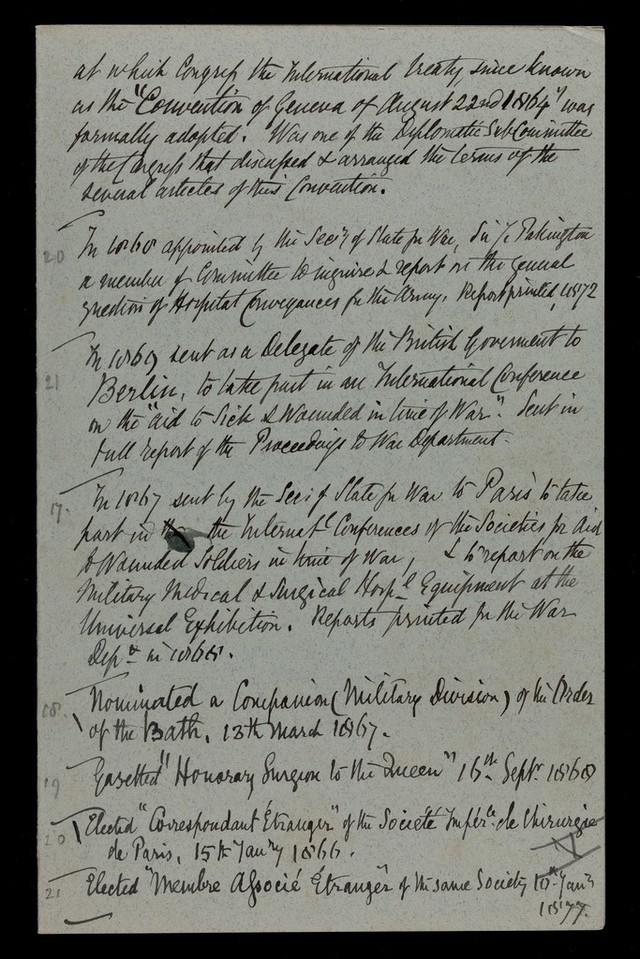 at which Congress the International treaty, since known
as the "Convention of Geneva of August 22nd 1864" was
formally adopted. Was one of the Diplomatic Sub Committee
of the Congress that discussed & arranged the terms of the
several articles of this Convention.
20 In 1868 appointed by the Secy of State for War, Sir J. Pakington
a member of Committee to inquire & report on the General
question of Hospital Conveyances for the Army. Report printed, 1872
21 In 1869 sent as a Delegate of the British Goverment to
Berlin, to take part in an International Conference
on the "aid to Sick & Wounded in time of War". Sent in
full report of the Proceedings to War Department.
17. In 1867 sent by the Sec: of State for War to Paris to take
part in the Internatl Conferences of the Societies for Aid
to Wounded Soldiers in time of War, & to report on the
Military Medical & Surgical Hospl Equipment at the
Universal Exhibition. Reports printed for the War
Dept in 1868.
18. Nominated a Companion (Military Division) of the Order
of the Bath, 13th March 1867.
19 Gazetted "Honorary Surgeon to the Queen" 16th Septr 1868
20 Elected "Correspondant Étranger" of the Societé Impérle de Chirurgie
de Paris, 15th Jany 1866.
21 Elected "Membre Associé Etranger" of the same Society 10th Jany
1877.